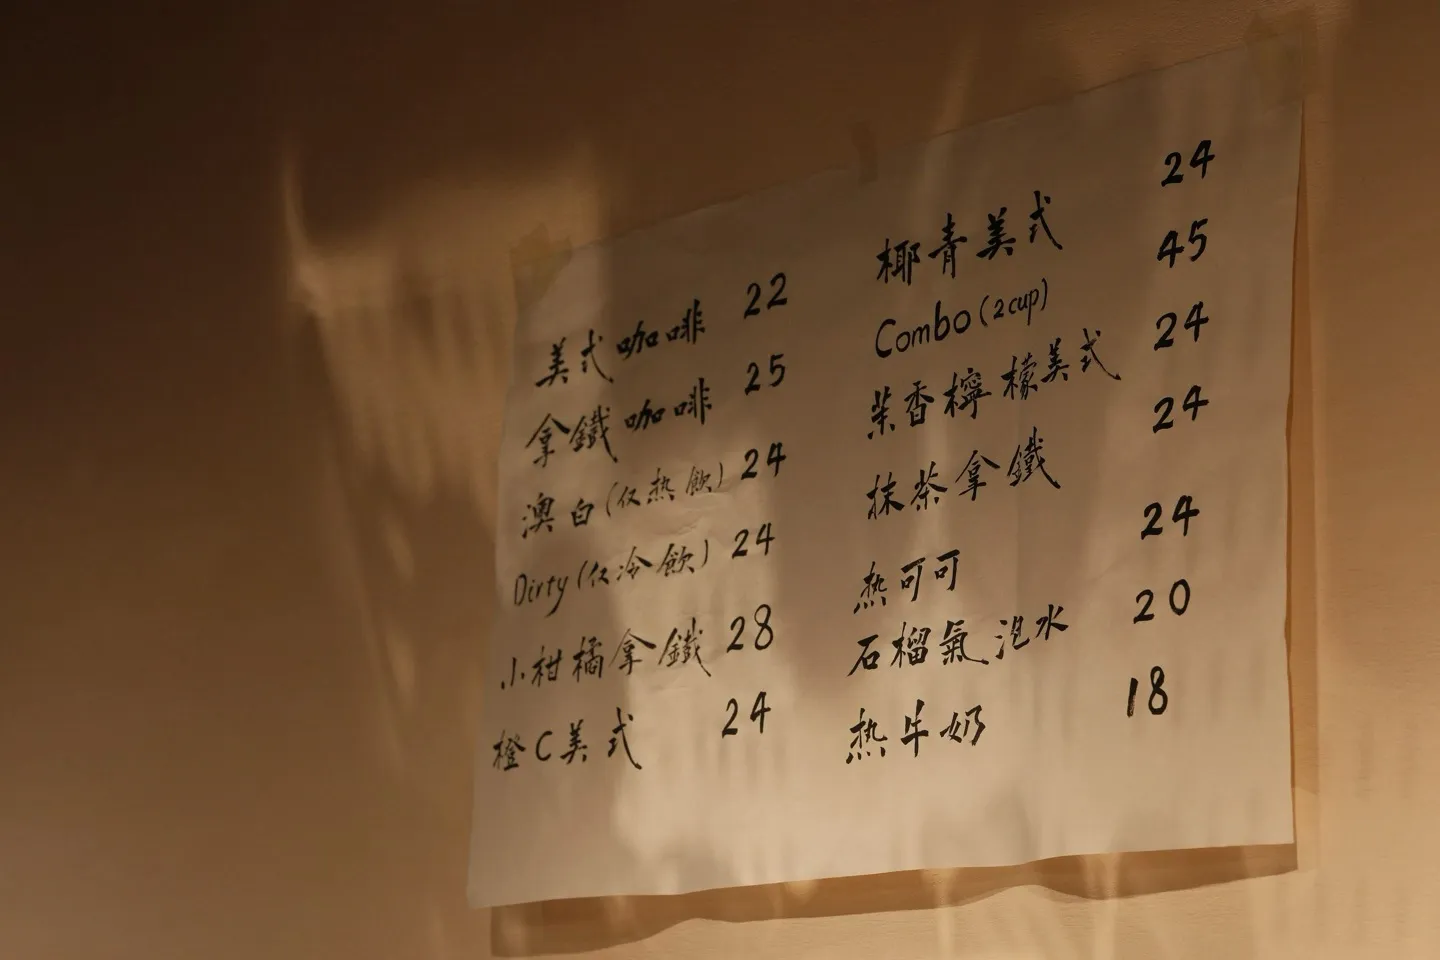 美式咖啡 22
拿鐵咖啡 25
澳白(仅热飲) 24
Dirty(仅冷飲) 24
小柑橘拿鐵 28
橙C美式 24
椰青美式 24
Combo(2cup) 45
茉香檸檬美式 24
抹茶拿鐵 24
热可可 24
石榴氣泡水 20
热牛奶 18